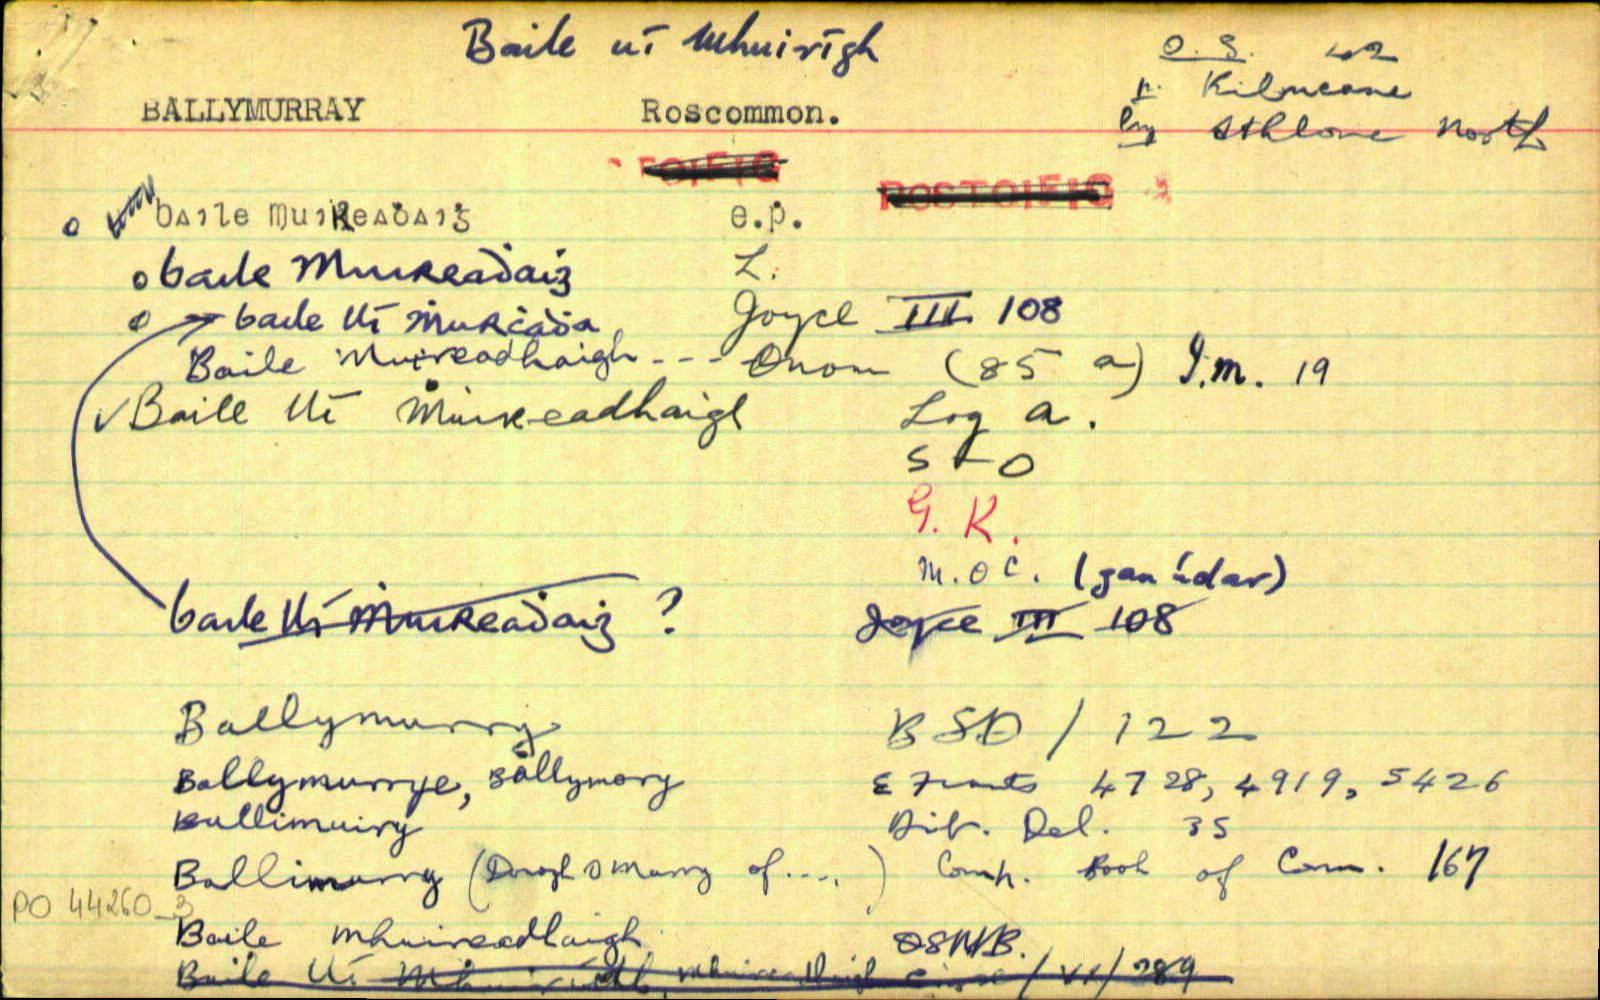 Baile uí Mhuirígh
O.S. 42
p. Kilmeane
Bny Athlone North
BALLYMURRAY Roscommon.
POSTOIFIG
baile muiReaḋaiġ e.p.
baile MuiReaḋaiġ L.
baile Uí ṀuRċaḋa Joyce III 108
Baile Muireadhaigh --- Onom (85 a) I.m. 19
✓ Baile Uí ṀuiReadhaigh Log a.
S+O
G. K.
M. O C. (gan údar)
baile Uí ṀuiReaḋaiġ ? Joyce III 108
Ballymurry BSD / 122
Ballymurrye, Ballymory E Fiants 4728, 4919, 5426
Ballimuiry Del. 35
Ballimurry ( O Murry of .... ) Comp. Book of Conn. 167
PO 44260_3
Baile Mhuireadhaigh OSNB.
Baile Uí / VI / 289